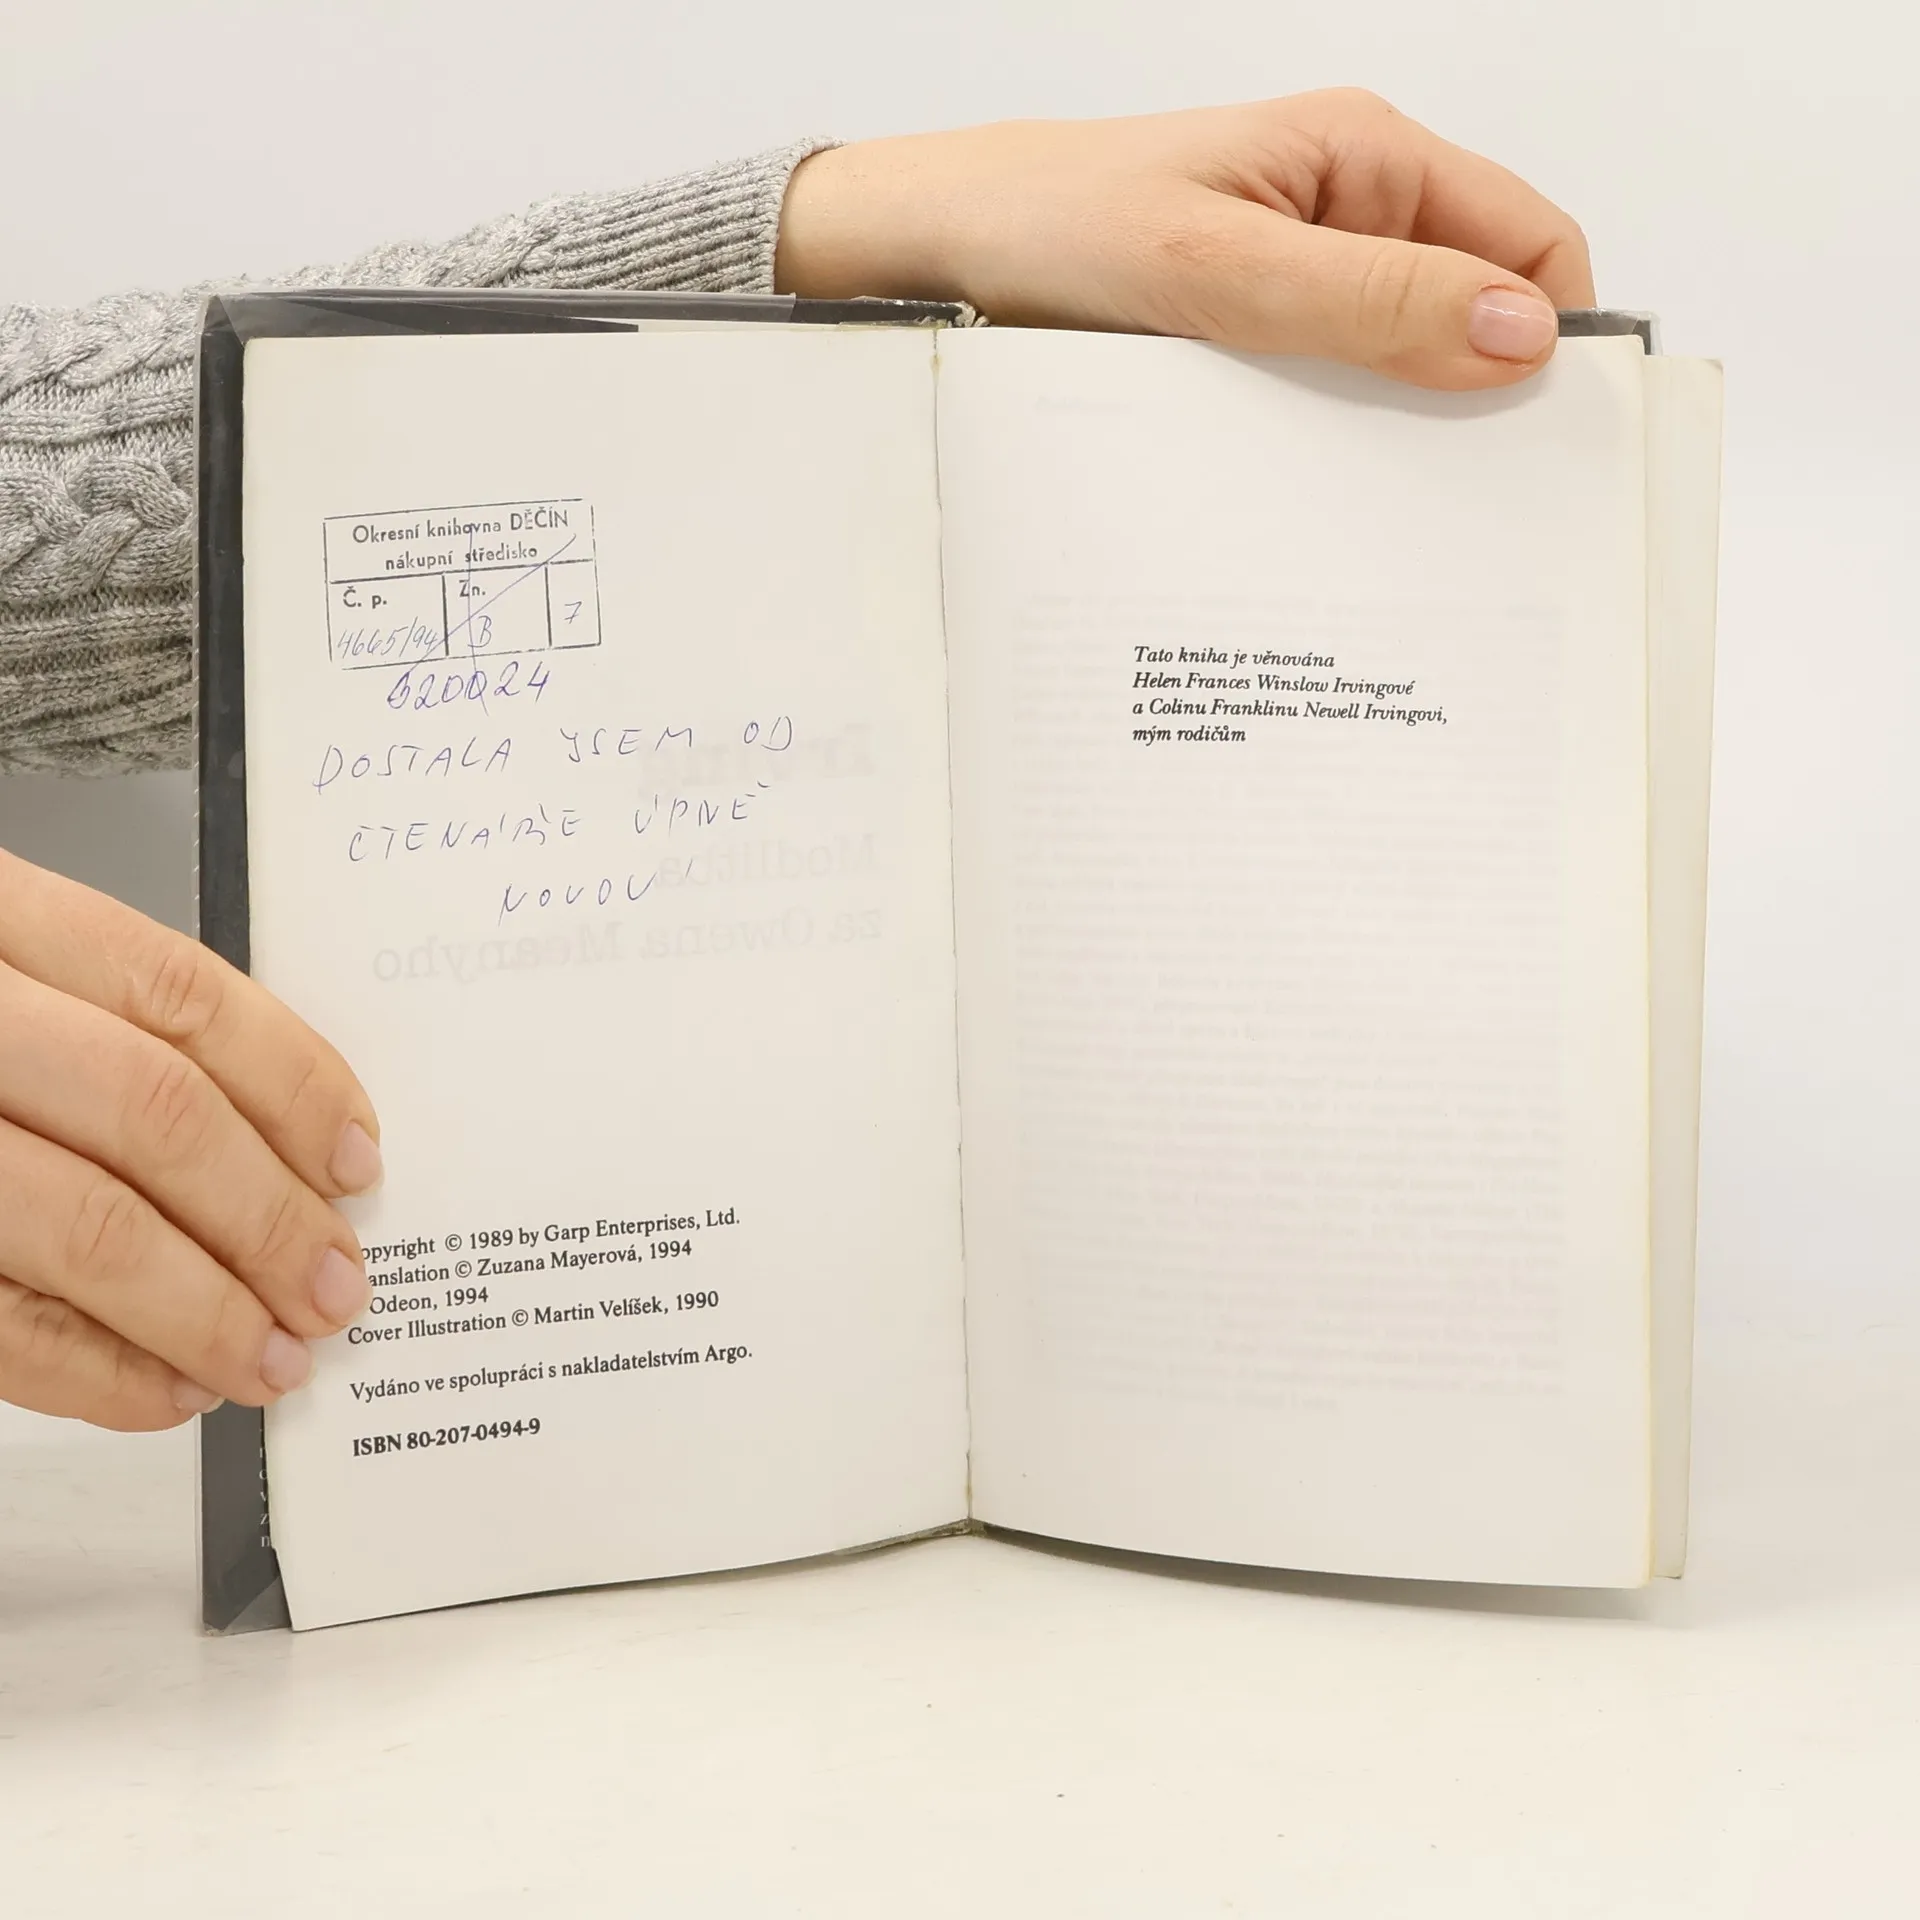 Okresní knihovna DĚČÍN
nákupní středisko
Č. p.
Zn.
4665/94
B
7
620024
DOSTALA JSEM OD
ČTENÁŘE ÚPNĚ
NOVOU
opyright © 1989 by Garp Enterprises, Ltd.
anslation © Zuzana Mayerová, 1994
Odeon, 1994
Cover Illustration © Martin Velíšek, 1990
Vydáno ve spolupráci s nakladatelstvím Argo.
ISBN 80-207-0494-9
Tato kniha je věnována
Helen Frances Winslow Irvingové
a Colinu Franklinu Newell Irvingovi,
mým rodičům